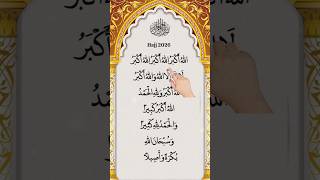 Hajj 2026
اللهُ أَكْبَرُ اللهُ أَكْبَرُ اللهُ أَكْبَرُ
لَا إِلٰهَ إِلَّا اللهُ وَاللهُ أَكْبَرُ
اللهُ أَكْبَرُ وَلِلّٰهِ الْحَمْدُ
اللهُ أَكْبَرُ كَبِيرًا
وَالْحَمْدُ لِلّٰهِ كَثِيرًا
وَسُبْحَانَ اللهِ
بُكْرَةً وَأَصِيلًا